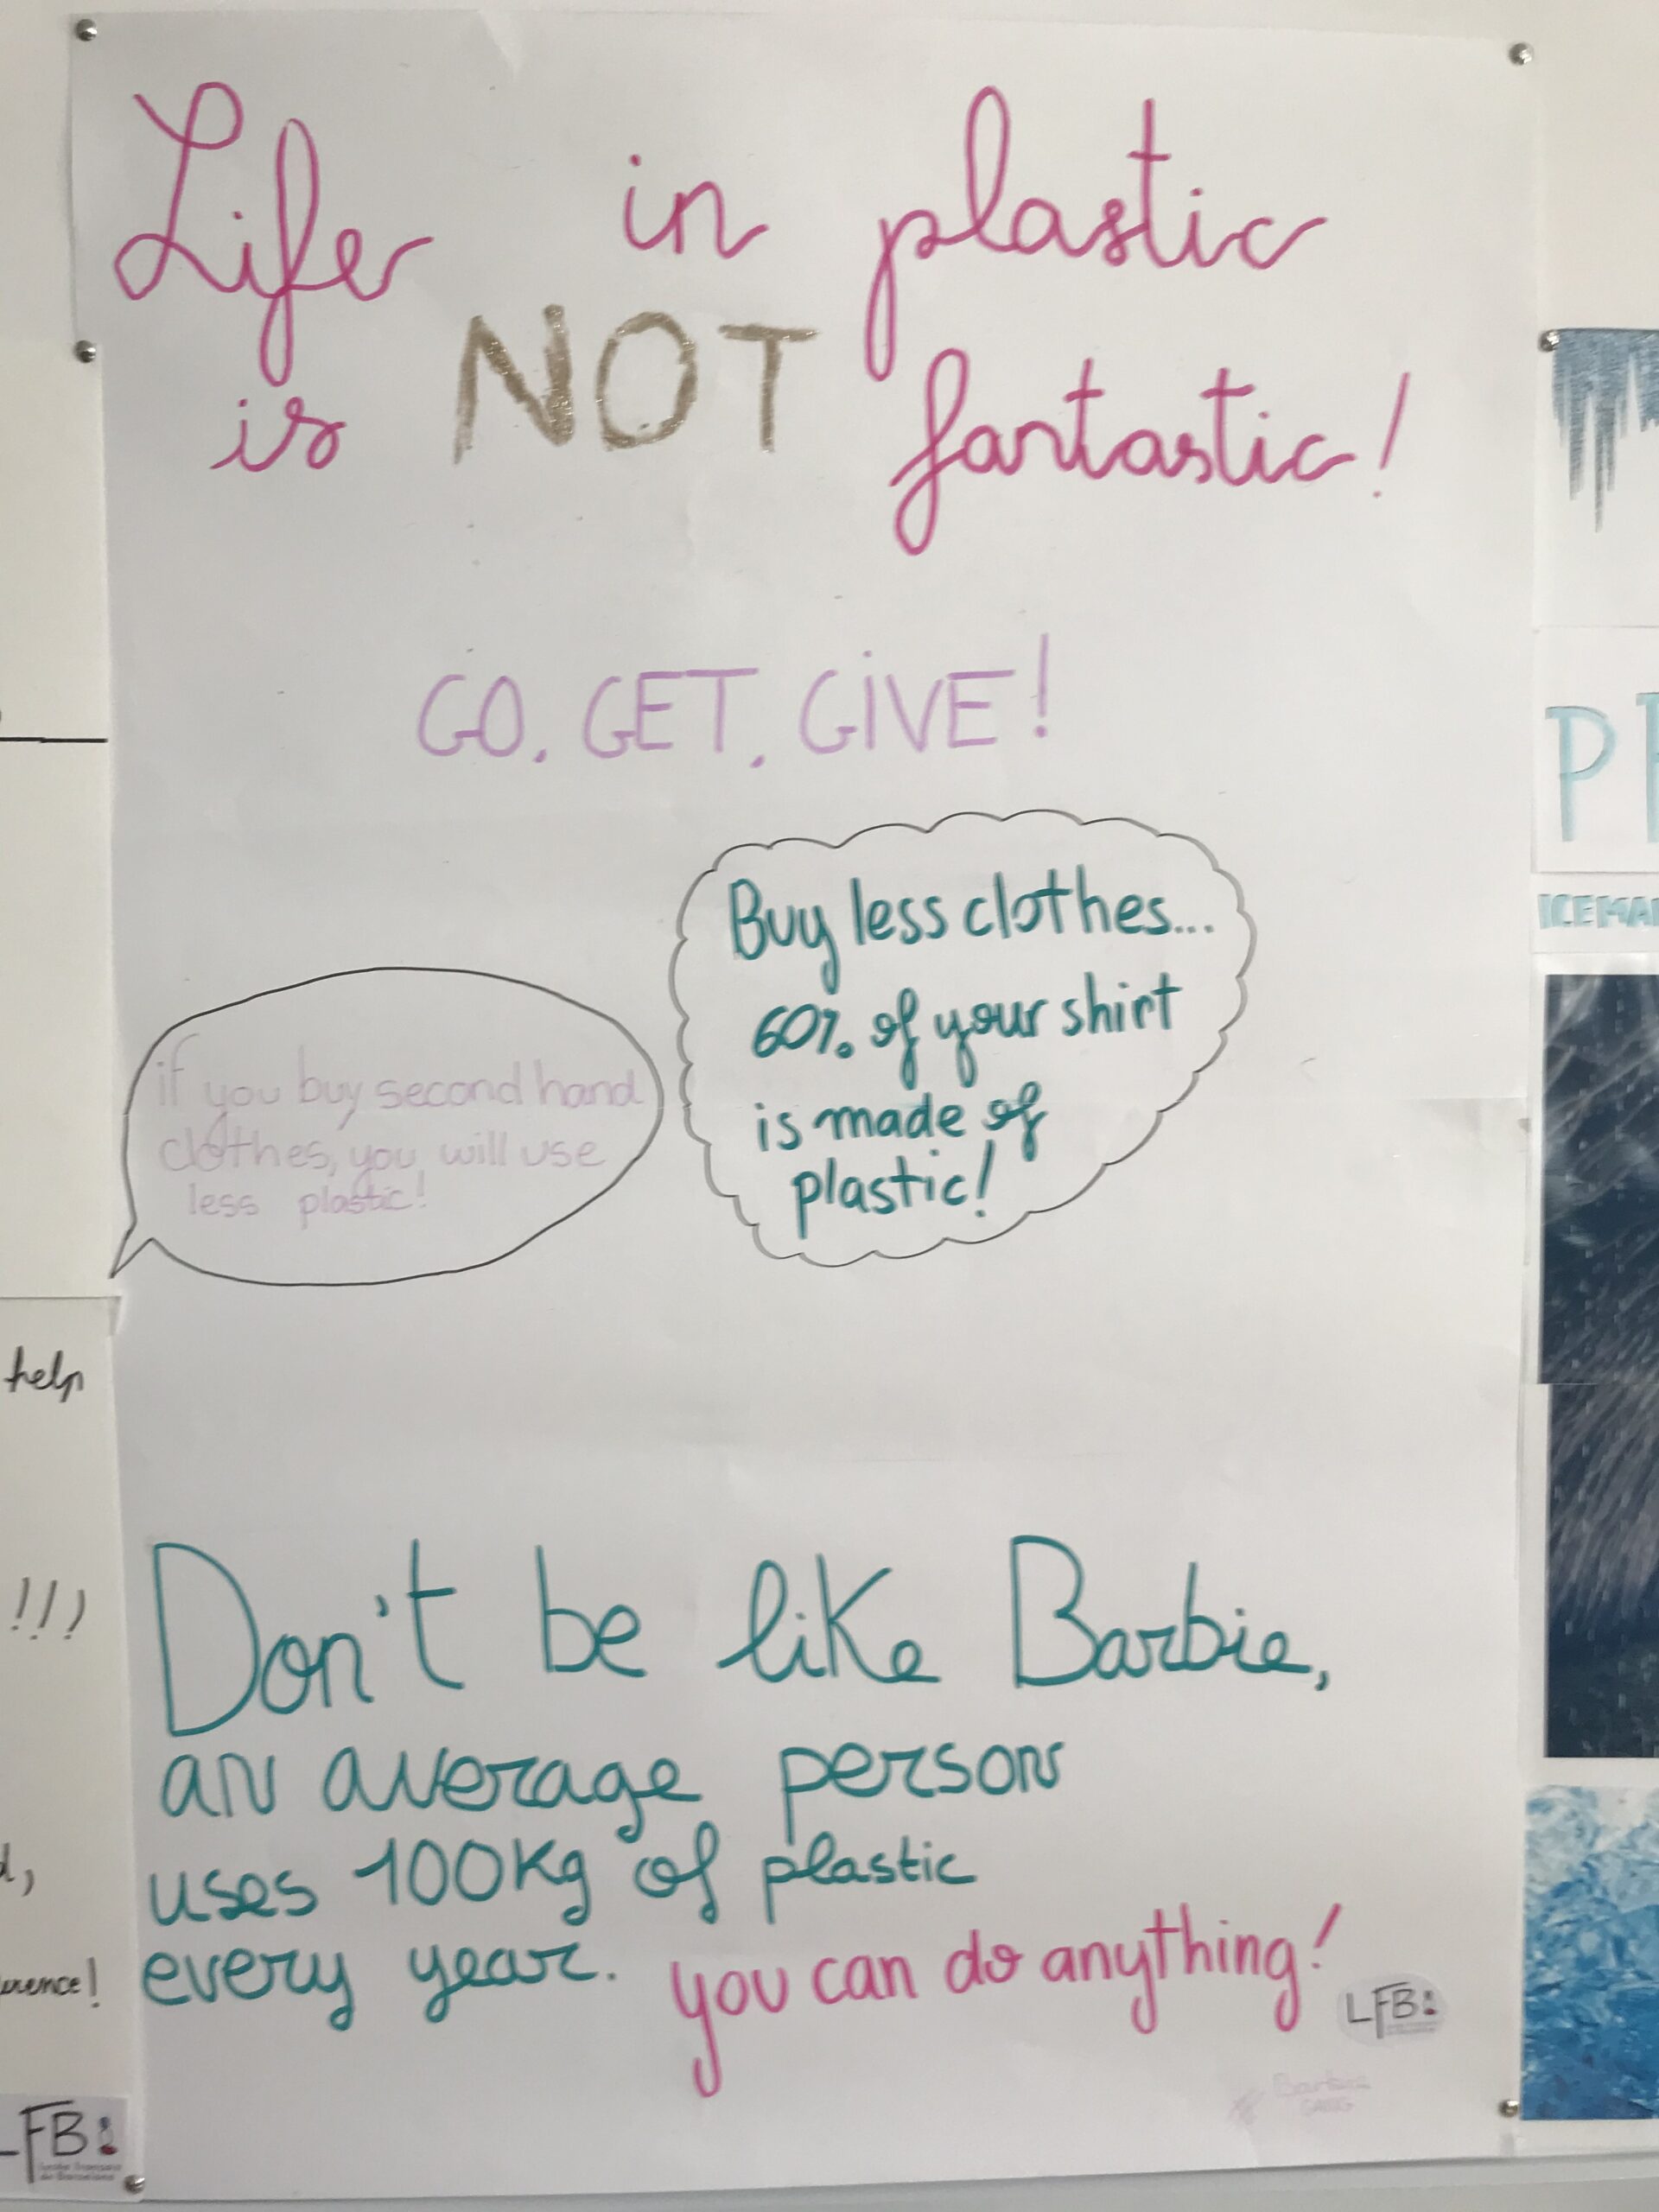 Life in plastic
is NOT fantastic!
GO, GET, GIVE!
Buy less clothes...
60% of your shirt
is made of
plastic!
if you buy second hand
clothes, you will use
less plastic!
Don't be like Barbie,
an average person
uses 100Kg of plastic
every year. you can do anything!
LFB
Barbie
help
!!!
LFB
ICEMA